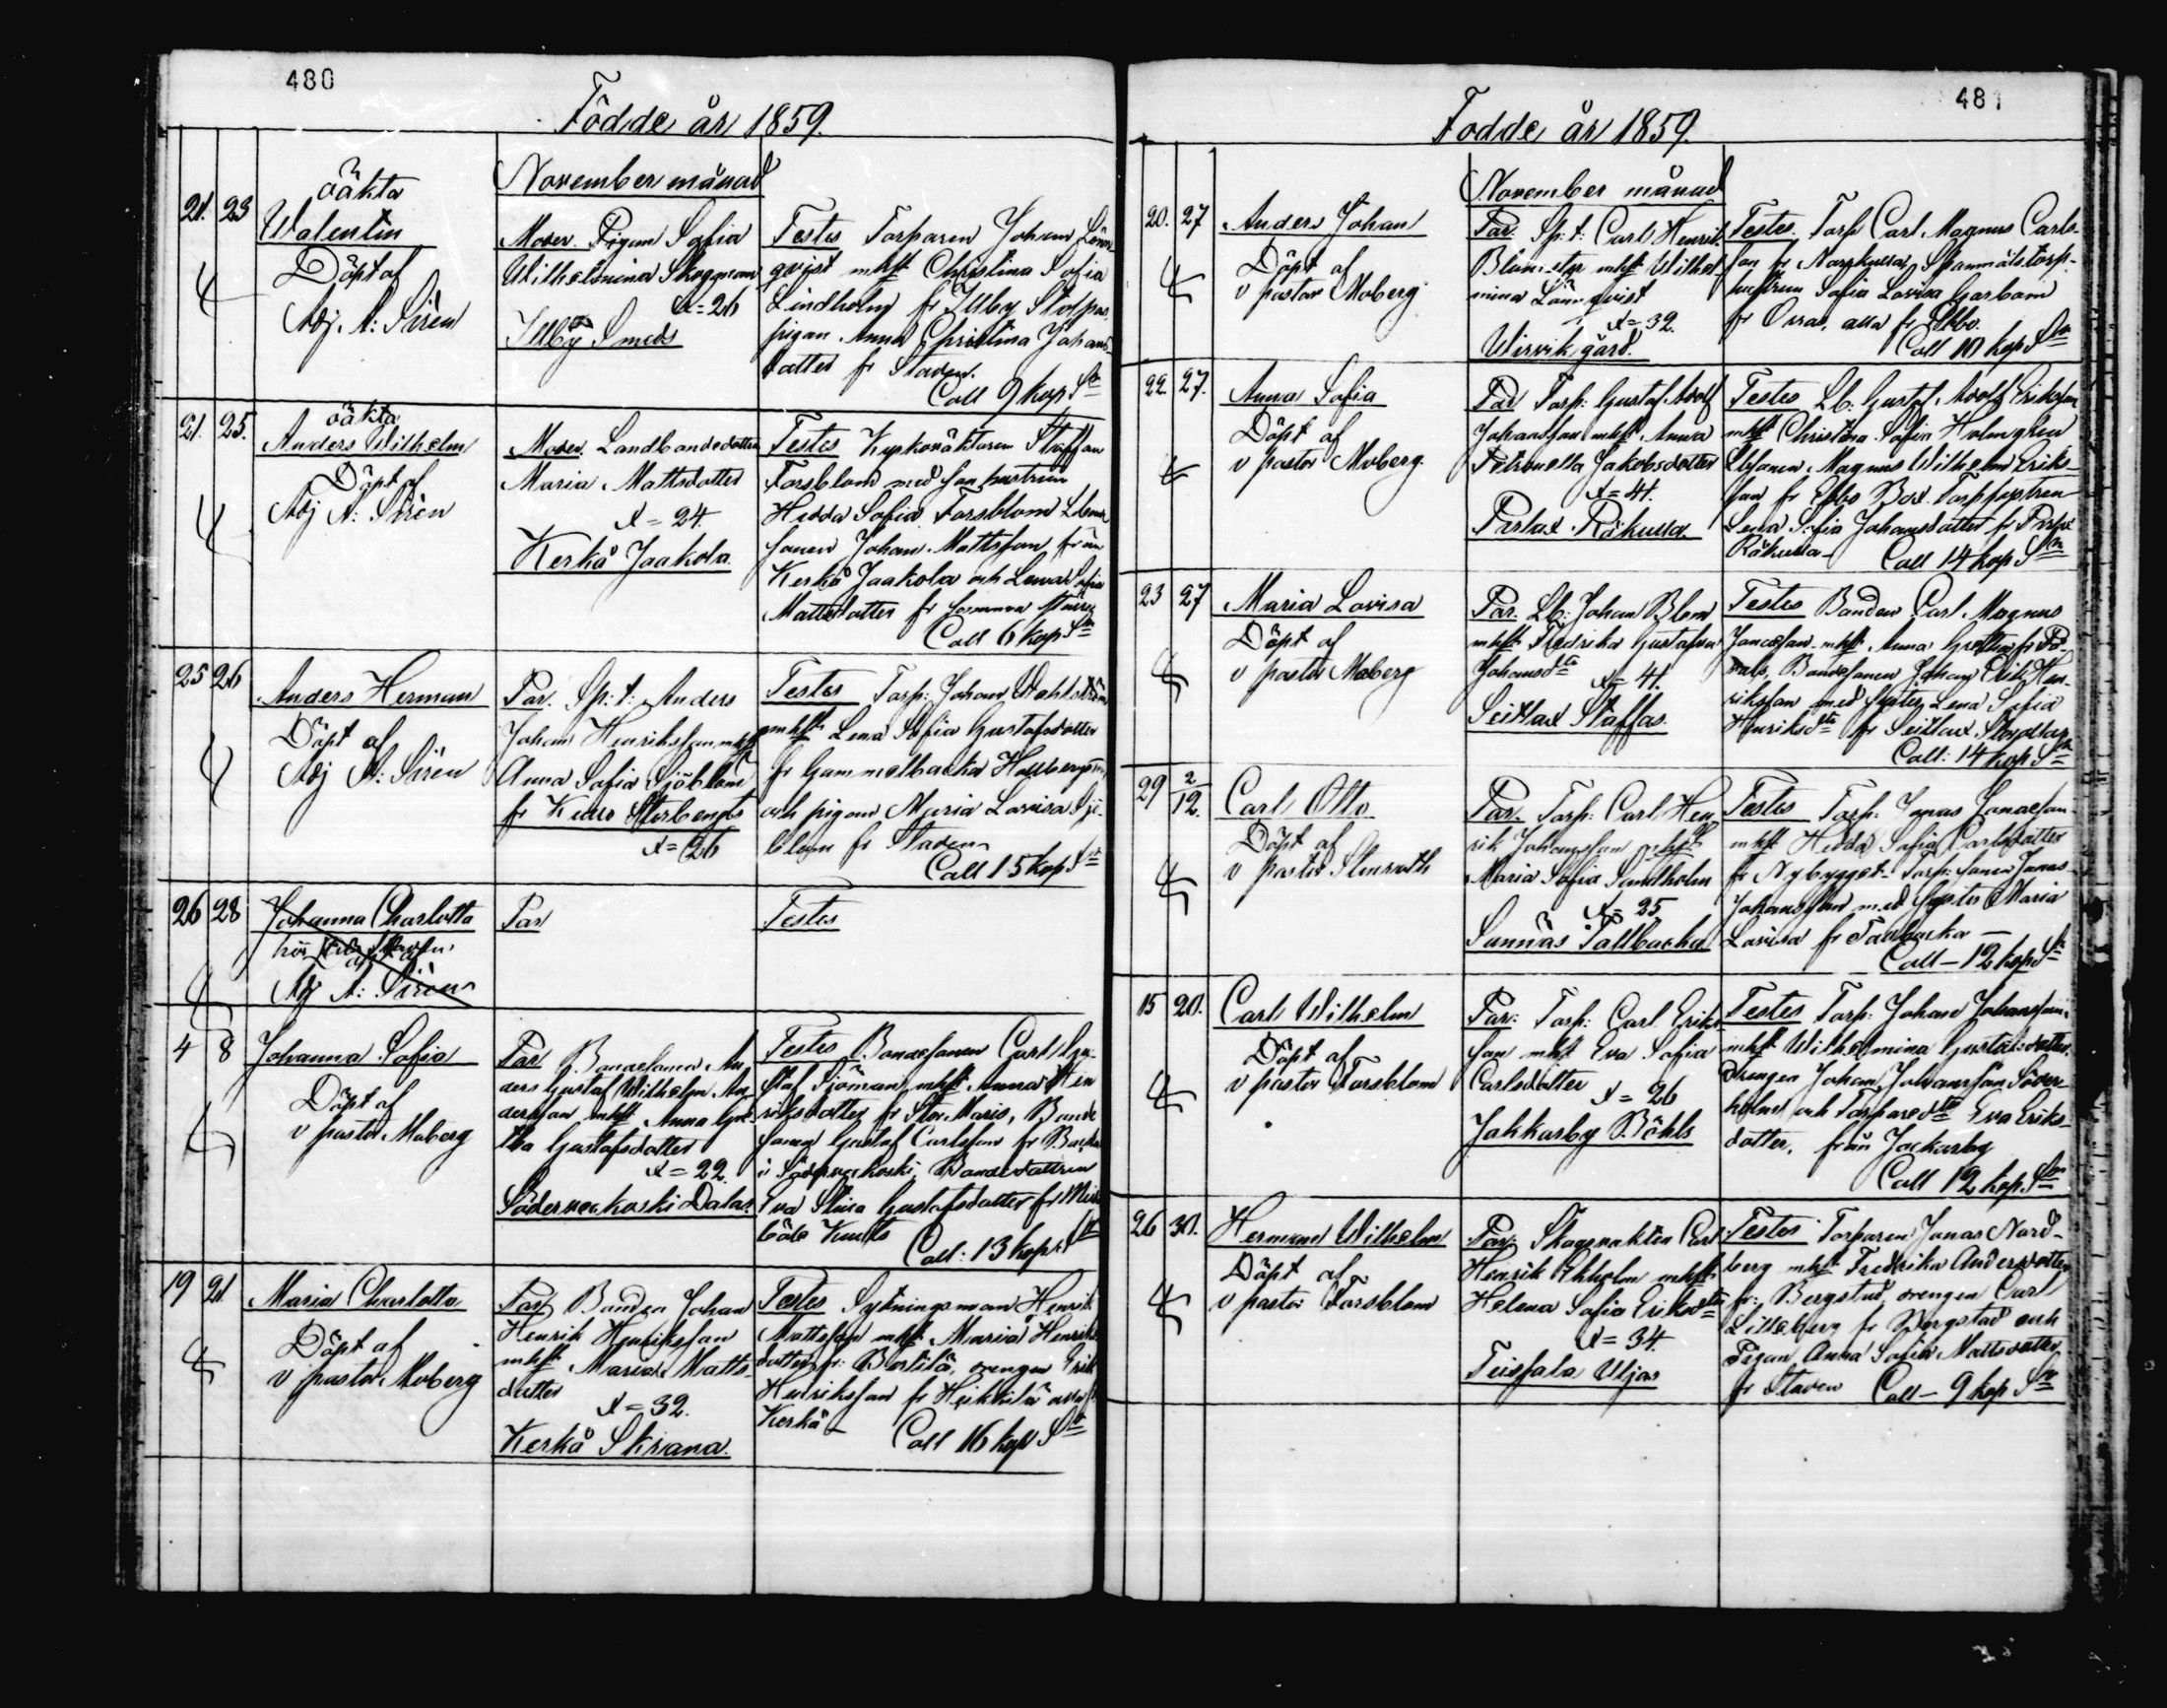 480
Födde år 1859.
November månad
21. 23
oäkta
Walentin
Döpt af
Adj. A: Sirén
Moder. Pigan Sofia
Wilhelmina Skogman
x=26
Illby Smeds
Testes Torparen Johan Lönn
qvist mhst Christina Sofia
Lindholm fr Illby Stolpas
pigan Anna Christina Johans
dotter fr Staden.
Coll 9 kop Sr
21. 25.
oäkta
Anders Wilhelm
Döpt af
Adj A: Sirén
Moder. Landbondedotter
Maria Mattsdotter
x = 24.
Kerko Jaakola.
Testes Kyrkovaktaren Staffan
Forsblom med sin hustru
Hedda Sofia Forsblom
sonen Johan Mattsson från
Kerko Jaakola och Lovisa Sofia
Mattsdotter fr samma
Coll 6 kop Sr
25 26
Anders Herman
Döpt af
Adj A: Sirén
Par. Sp: t: Anders
Johan Henriksson mhst
Anna Sofia Sjöblom
fr Kullo Storbengts
x= 26
Testes Torp: Johan Wahlström
mhst Lena Sofia Gustafsdotter
fr Gammelbacka
och pigan Maria Lovisa Sjö-
blom fr Staden
Coll 15 kop Sr
26 28
Johanna Charlotta
hör
Adj A: Sirén
Par
Testes
4 8
Johanna Sofia
Döpt af
v pastor Moberg
Par Bondesonen An
ders Gustaf Wilhelm An
dersson mhst Anna Gre
tha Gustafsdotter
x = 22.
Söderveckoski Dalas.
Testes Bondesonen Carl Gu
staf Sjöman mhst Anna Hen
riksdotter fr Stor Maris, Bonde
sonen Gustaf Carlsson fr
i Söderveckoski, Bondedottren
Eva Stina Gustafsdotter fr
böle Knuts
Coll: 13 kop: Sr
19 21
Maria Charlotta
Döpt af
v pastor Moberg
Par Bonden Johan
Henrik Henriksson
mhst Maria Matts
dotter
x = 32.
Kerko Skrana.
Testes Sytningsman Henrik
Mattsson mhst Maria Henriks
dotter fr: Bertilä, drengen Erik
Henriksson fr Heikkilä alla fr
Kerko
Coll 16 kop Sr
481
Födde år 1859.
November månad
20. 27
Anders Johan
Döpt af
v pastor Moberg
Par. Sp: t: Carl Henrik
Blomster mhst Wilhel
mina Lönnqvist
x= 32.
Wirvik gård.
Testes. Torp Carl Magnus Carls
son fr Norrkulla, Spanmålstorp-
hustrun Sofia Lovisa
fr Orras, alla fr Ebbo.
Coll 10 kop Sr
22. 27.
Anna Sofia
Döpt af
v pastor Moberg.
Par Torp: Gustaf Adolf
Johansson mhst Anna
Petronella Jakobsdotter
x= 41.
Perlax Röhulla.
Testes Lb: Gustaf Adolf Eriksson
mhst Christina Sofia Holmgren
Lbsonen Magnus Wilhelm Eriks-
son fr Ebbo Box. Torpsystren
Lena Sofia Johansdotter fr
Röhulla-
Coll 14 kop Sr
23 27
Maria Lovisa
Döpt af
v pastor Moberg
Par. Lb: Johan Blom
mhst Fredrika Gustafva
Johansdtr x= 41.
Seitlax Staffas.
Testes Bonden Carl Magnus
Jonasson mhst Anna Gretha fr
Bondesonen Johan Erik Hen
riksson med syster Lena Sofia
Henriksdtr fr Seitlax
Coll: 14 kop Sr
29 2/12.
Carl Otto
Döpt af
v pastor Stenroth
Par. Torp: Carl Hen
rik Johansson mhst
Maria Sofia Sundholm
x= 25
Sunnäs Tallbacka
Testes Torp: Jonas Jonasson
mhst Hedda Sofia Carlsdotter
fr Nybygget- Torp: sonen Jonas
Johansson med syster Maria
Lovisa fr Tallbacka —
Coll — 12 kop Sr
15 20.
Carl Wilhelm
Döpt af
v pastor Forsblom
Par: Torp: Carl Eriks
son mhst Eva Sofia
Carlsdotter x = 26
Jakkarby Böhls
Testes Torp: Johan Johansson
mhst Wilhelmina Gustafsdotter
drengen Johan Johansson Söder
holm och Torparedtr Eva Eriks-
dotter, från Jackarby
Coll 12 kop. Sr
26 30.
Herman Wilhelm
Döpt af
v pastor Forsblom
Par: Skogvakten Carl
Henrik Ekholm mhst
Helena Sofia Eriksdtr
x= 34.
Teisala Uljas
Testes Torparen Jonas Nord-
berg mhst Fredrika Andersdotter
fr: Bergstad, drengen Carl
Lilleberg fr Bergstad och
Pigan Anna Sofia Mattsdotter
fr Staden Coll — 9 kop Sr